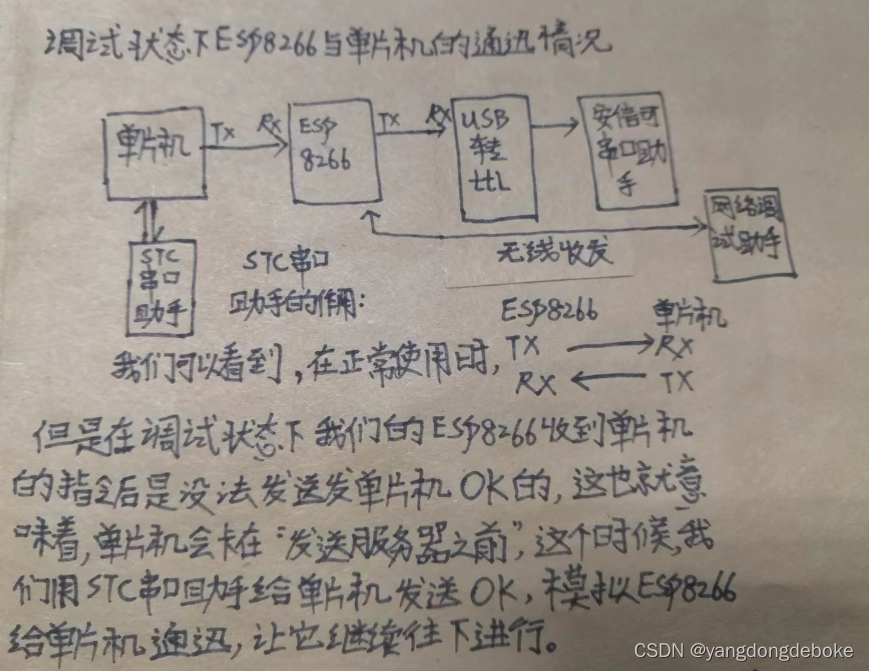 调试状态下ESP8266与单片机的通迅情况
单片机
TX
RX
ESP
8266
TX
RX
USB
转
ttL
安信可
串口助
手
网络调
试助手
无线收发
STC
串口
助手
STC串口
助手的作用:
ESP8266 单片机
TX RX
RX TX
我们可以看到,在正常使用时,
但是在调试状态下我们的ESP8266收到单片机
的指令后是没法发送发单片机OK的,这也就意
味着,单片机会卡在“发送服务器之前”,这个时候,我
们用STC串口助手给单片机发送OK,模拟ESP8266
给单片机通迅,让它继续往下进行。
CSDN @yangdongdeboke